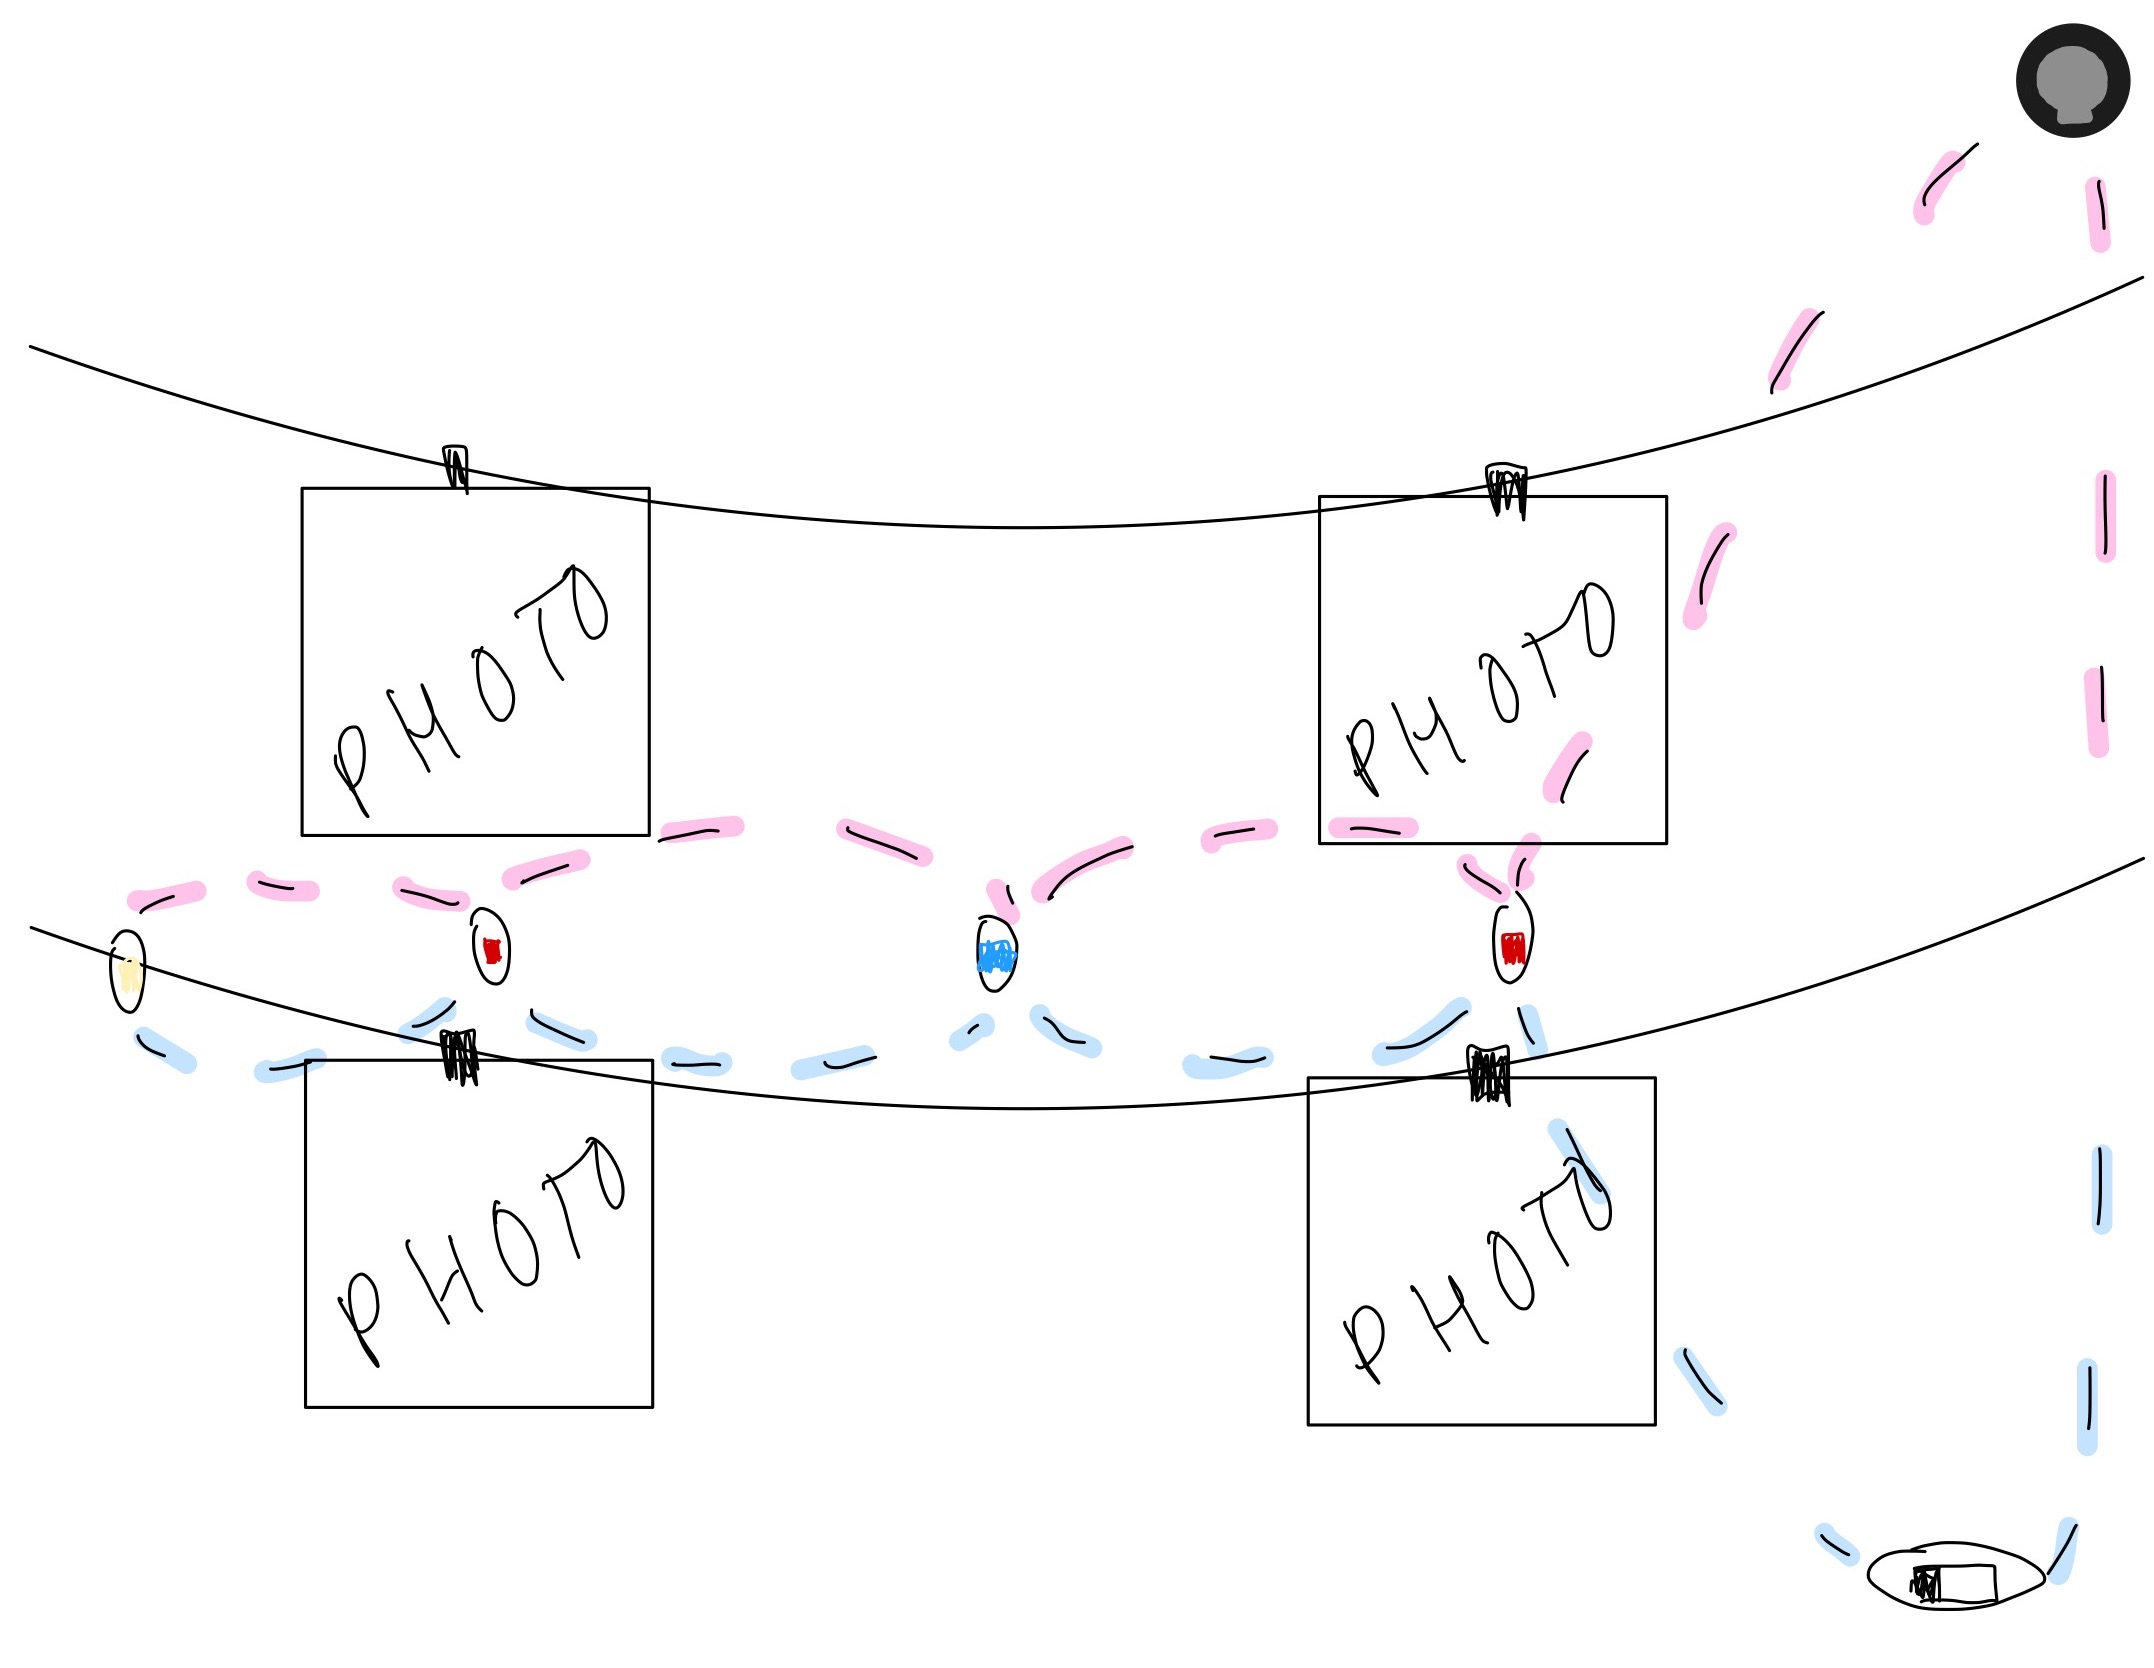 PHOTO
PHOTO
PHOTO
PHOTO